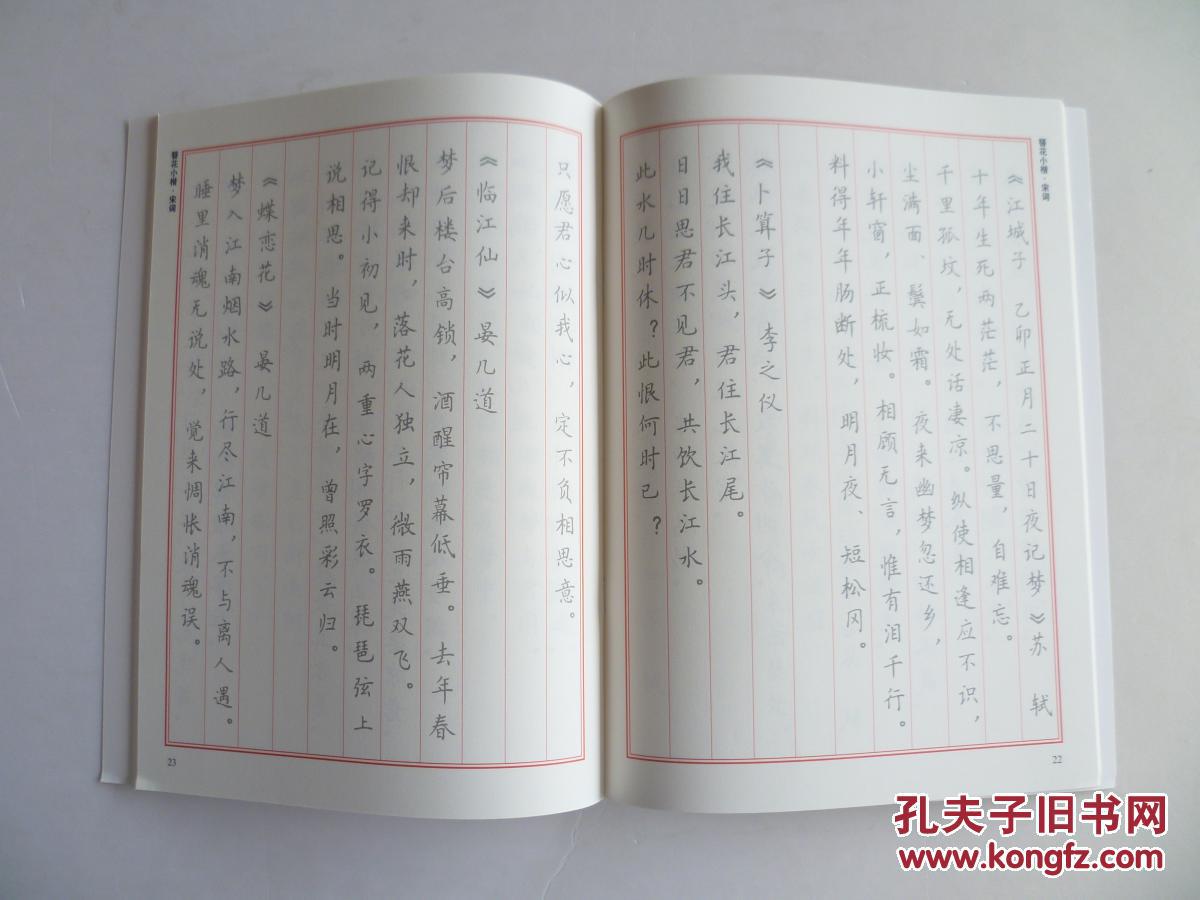 簪花小楷·宋词
《江城子 乙卯正月二十日夜记梦》苏 轼
十年生死两茫茫，不思量，自难忘。
千里孤坟，无处话凄凉。纵使相逢应不识，
尘满面、鬓如霜。夜来幽梦忽还乡，
小轩窗，正梳妆。相顾无言，惟有泪千行。
料得年年肠断处，明月夜、短松冈。
《卜算子》李之仪
我住长江头，君住长江尾。
日日思君不见君，共饮长江水。
此水几时休？此恨何时已？
22
只愿君心似我心，定不负相思意。
《临江仙》晏几道
梦后楼台高锁，酒醒帘幕低垂。去年春
恨却来时，落花人独立，微雨燕双飞。
记得小初见，两重心字罗衣。琵琶弦上
说相思。当时明月在，曾照彩云归。
《蝶恋花》晏几道
梦入江南烟水路，行尽江南，不与离人遇。
睡里消魂无说处，觉来惆怅消魂误。
簪花小楷·宋词
23
孔夫子旧书网
www.kongfz.com